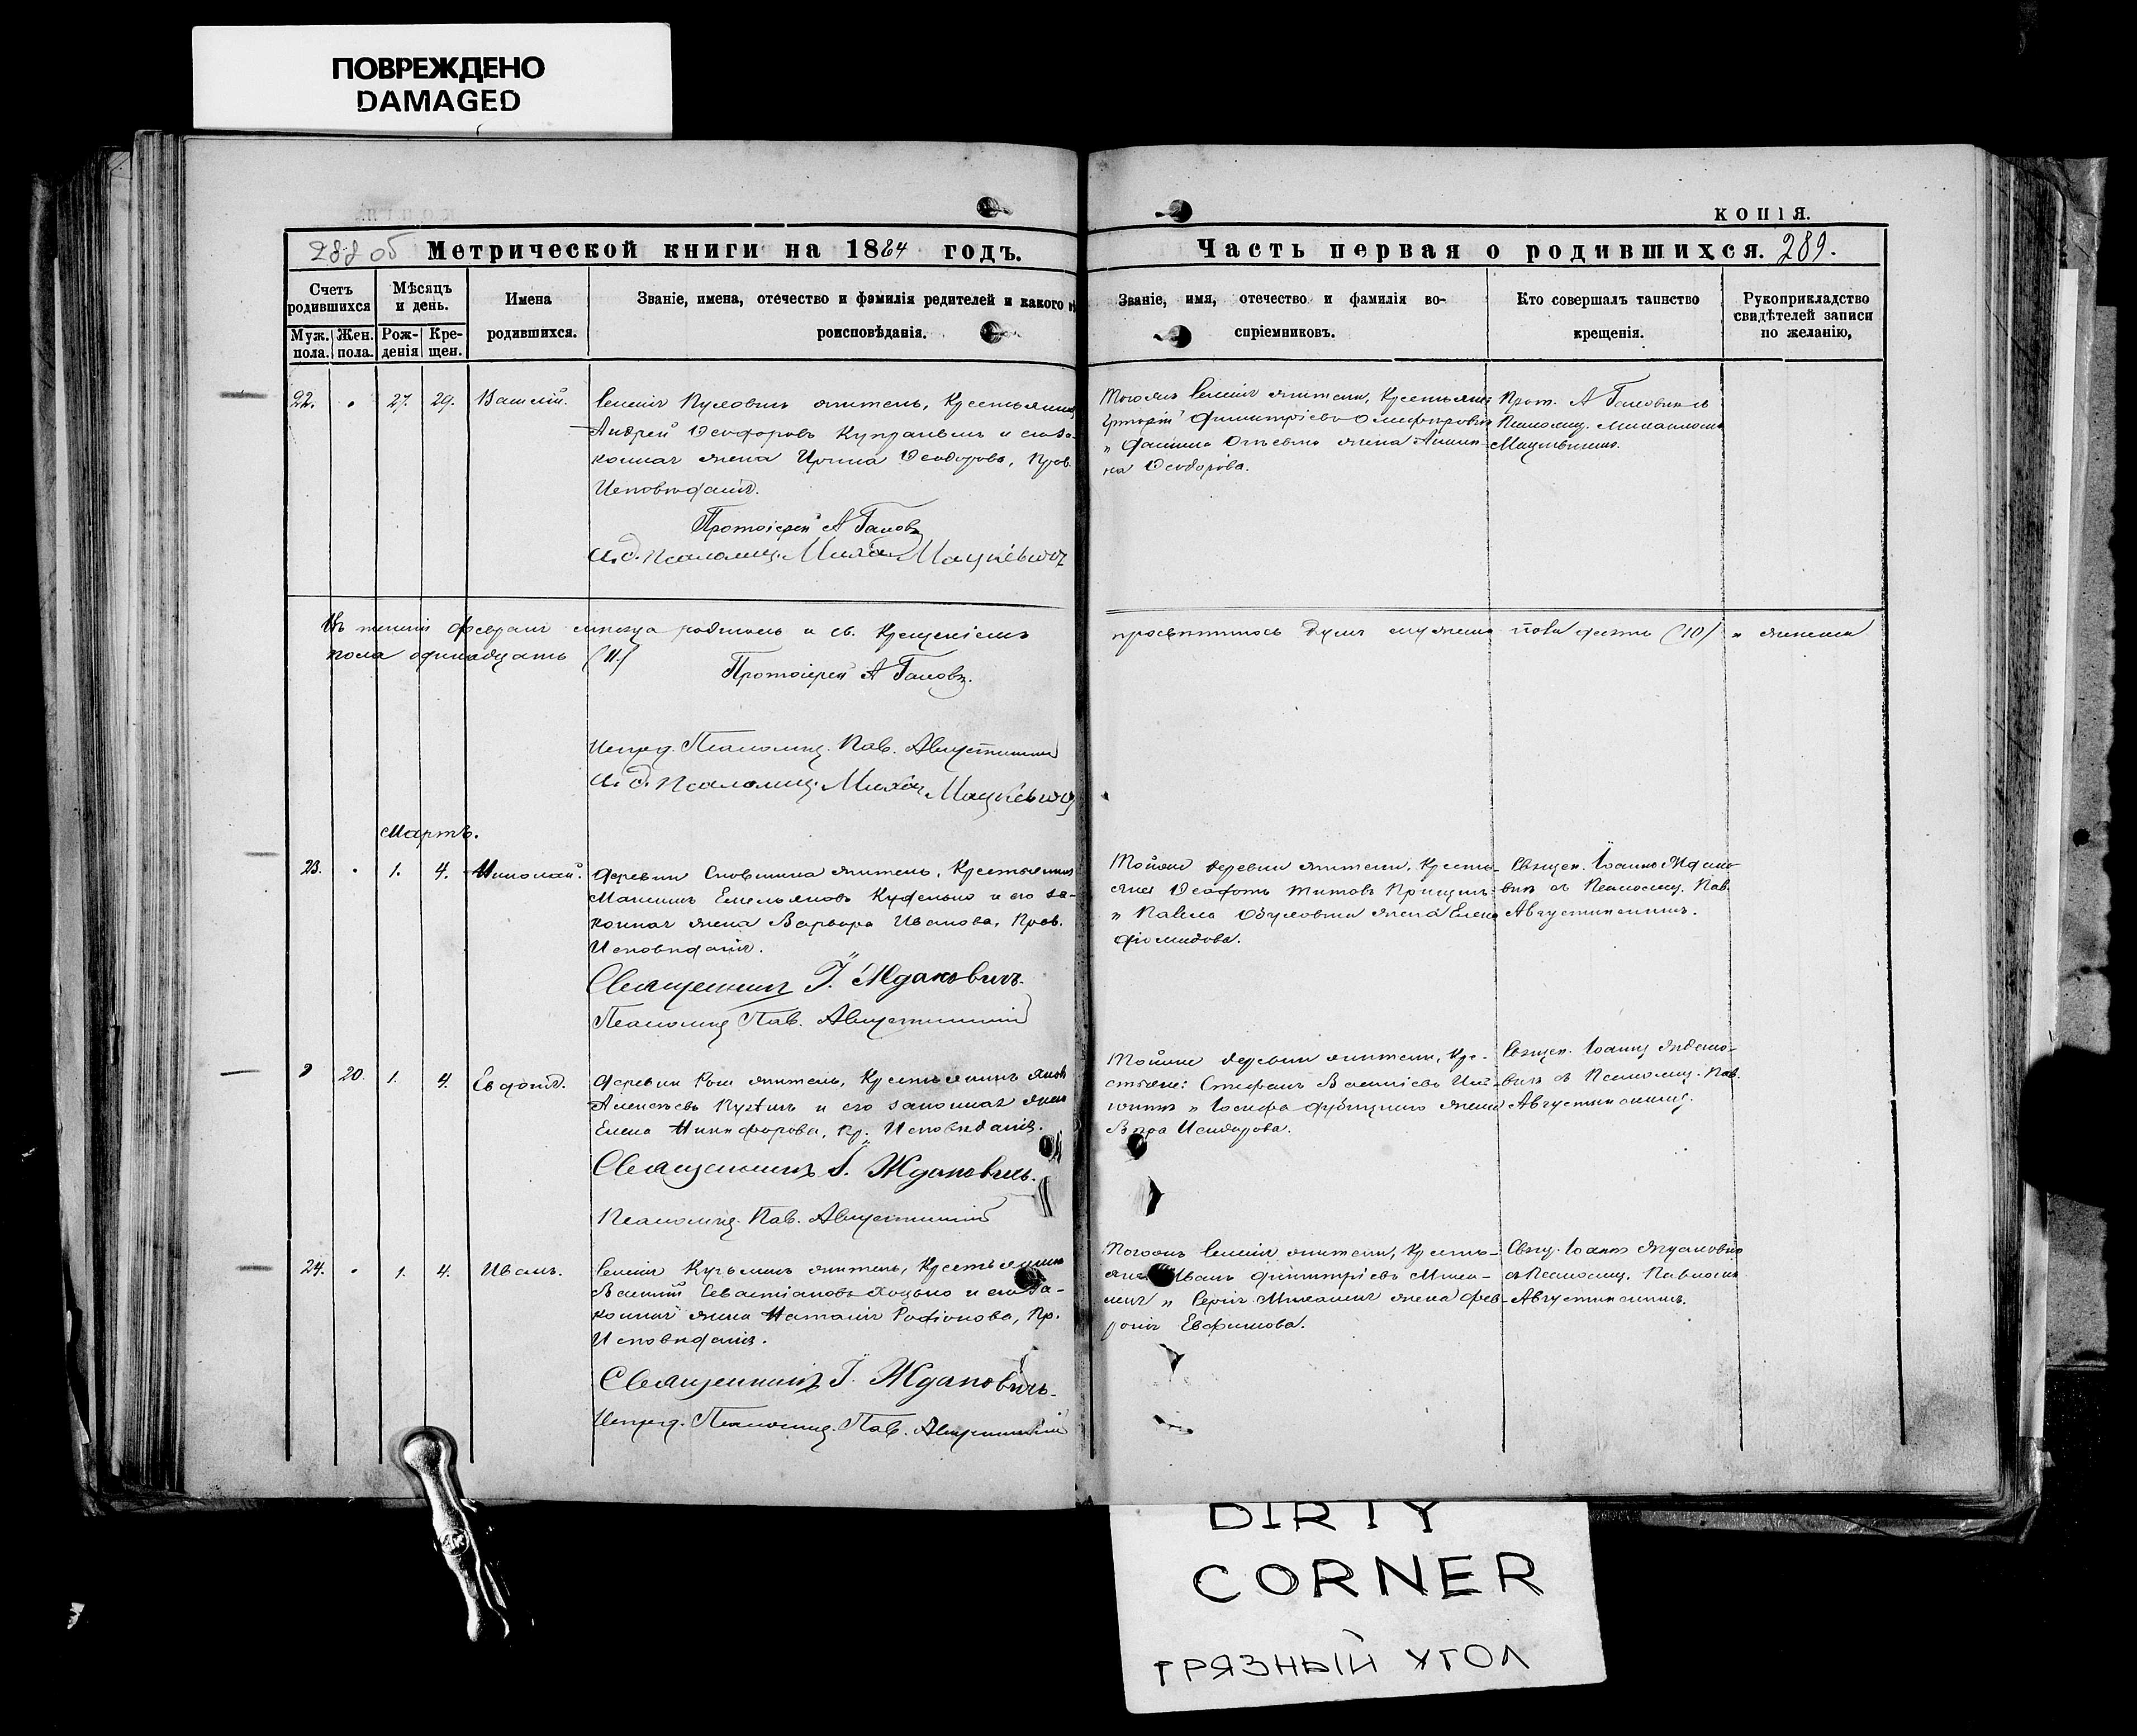 ПОВРЕЖДЕНО
DAMAGED
КОПІЯ.
288 об Метрической книги на 1884 годъ.
Часть первая о родившихся. 289.
Счетъ родившихся
Мѣсяцъ и день.
Имена родившихся.
Званіе, имена, отечество и фамилія родителей и какого
роисповѣданія.
Муж. пола.
Жен. пола.
Рож-денія
Кре-щен.
Званіе, имя, отечество и фамилія во-
спріемниковъ.
Кто совершалъ таинство
крещенія.
Рукоприкладство
свидѣтелей записи
по желанію,
22. 27. 29. Василій.
Селенія житель, Крестьянинъ
Андрей Ѳеодоровъ и его за-
конная жена Ирина Ѳеодорова, Прав.
Исповѣданія.
Протоіерей А
И. д. Псаломщ. Михаи Мацкевичъ
Тогожъ Селенія жители, Крестьяне
Григорій Димитріевъ
жена
на Ѳеодорова.
Прот. А
Псаломщ. Михаиломъ
Мацкевичемъ.
Въ теченіи Февраля мѣсяца родилось и св. Крещеніемъ
просвѣтилось душъ мужеска пола десять (10) и женска
пола одинадцать (11.)
Протоіерей А
Псаломщ. Пав. Августинскій
И. д. Псаломщ. Михаи Мацкевичъ
Мартъ.
23. 1. 4. Николай.
Деревни житель, Крестьянинъ
Максимъ Емельяновъ и его за-
конная жена Варвара Иванова, Прав.
Исповѣданія.
Священникъ І. Ждановичъ.
Псаломщ Пав. Августинскій
Тойже деревни жители, Кресть-
яне Ѳеодотъ Титовъ
и Павла жена Елена
Діомидова.
Священ. Іоаннъ Ждано-
вичъ съ Псаломщ. Пав.
Августинскимъ.
20. 1. 4. Евдокія.
Деревни житель, Крестьянинъ Яковъ
Алексѣевъ и его законная жена
Елена Никифорова, Пр. Исповѣданія.
Священникъ І. Ждановичъ.
Псаломщ. Пав. Августинскій
Тойже деревни жители, Кре-
стьяне: Стефанъ Василіевъ
и Іосифа жена
Вѣра Исидорова.
Священ. Іоаннъ Ждано-
вичъ съ Псаломщ. Пав.
Августинскимъ.
24. 1. 4. Иванъ.
Селенія житель, Крестьянинъ
Василій Севастіановъ и его за-
конная жена Наталія Родіонова, Пр.
Исповѣданія.
Священникъ І. Ждановичъ.
Псаломщ. Пав. Августинскій
Тогожъ Селенія жители, Кресть-
яне Иванъ Димитріевъ
и Сергія жена Фев-
ронія Евфимова.
Свящ. Іоаннъ Ждановичъ
съ Псаломщ. Павломъ
Августинскимъ.
DIRTY
CORNER
ГРЯЗНЫЙ УГОЛ